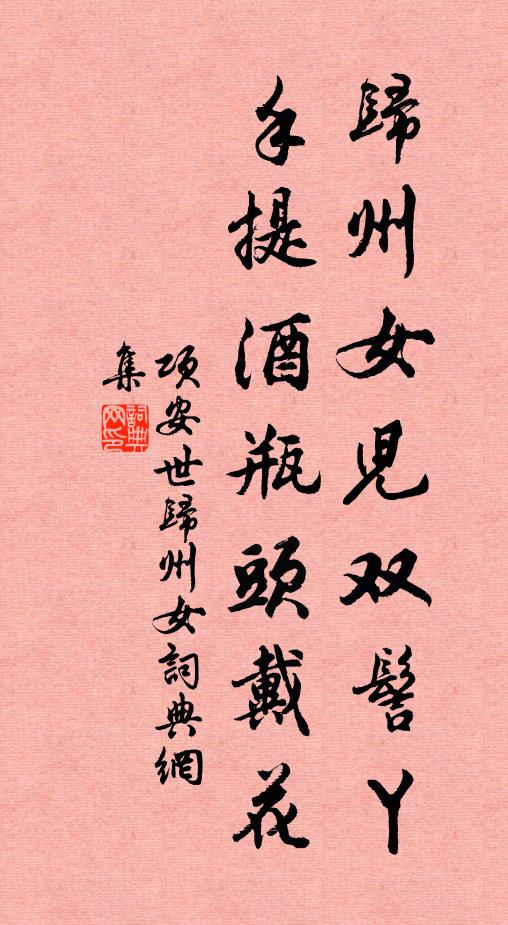 歸州女兒双髻丫
手提酒瓶頭戴花
項安世歸州女詞典網
集
詞典
网印